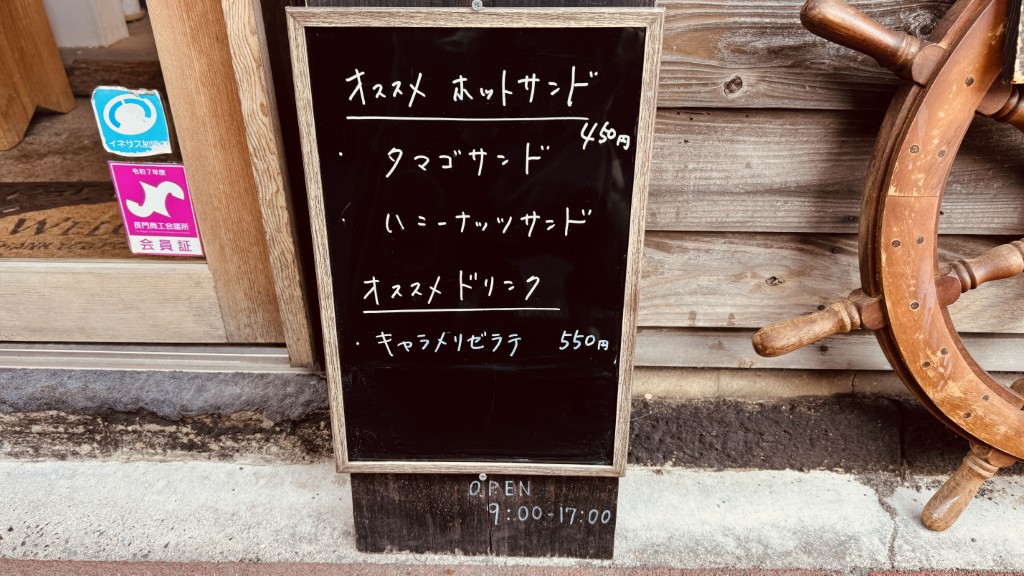 オススメ ホットサンド
450円
・ タマゴサンド
・ ハニーナッツサンド
オススメドリンク
・ キャラメリゼラテ 550円
OPEN
9:00-17:00
イネサス加盟店
令和7年度
長門商工会議所
会員証